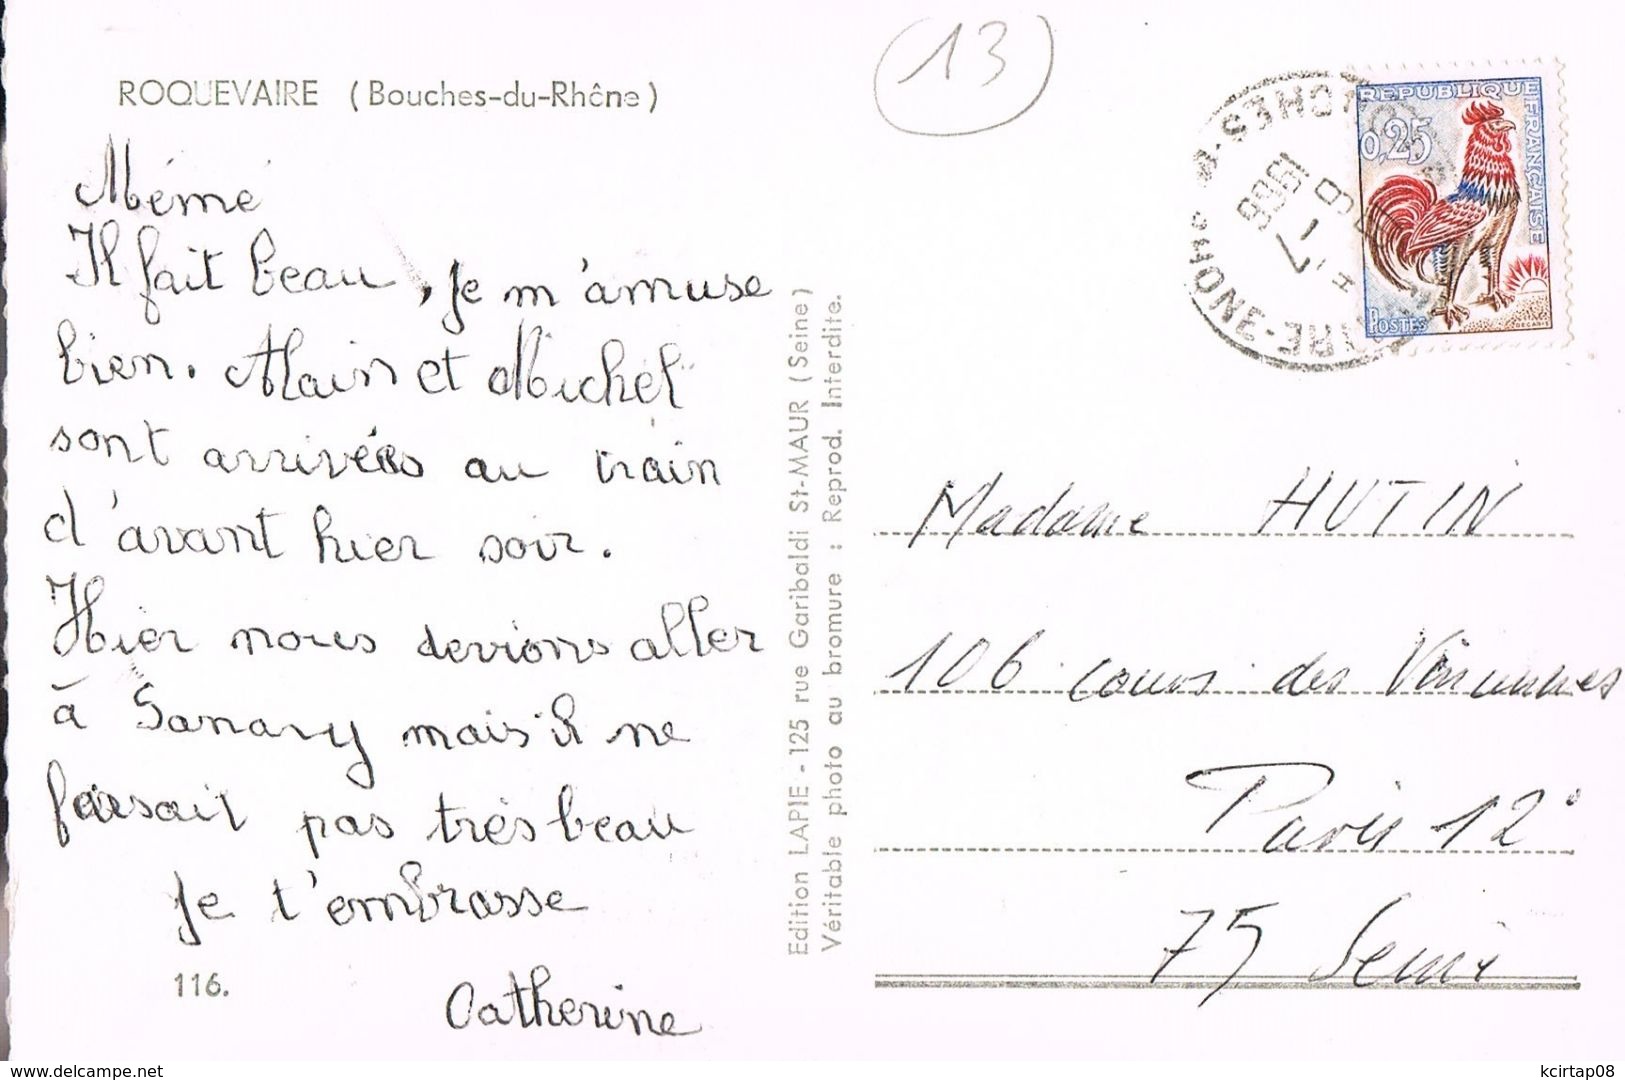 ROQUEVAIRE (Bouches-du-Rhône)
13
Mémé
Il fait beau, je m'amuse
bien. Alain et Michel
sont arrivés au train
d'avant hier soir.
Hier nous devions aller
à Sanary mais il ne
faisait pas très beau
Je t'embrasse
Catherine
116.
Edition LAPIE - 125 rue Garibaldi St-MAUR (Seine)
Véritable photo au bromure : Reprod. Interdite.
REPUBLIQUE FRANÇAISE
0,25
POSTES
DECARIS
7-9
1966
RHONE
Madame HUTIN
106 cours des Vincennes
Paris 12°
75 Seine
delcampe.net
kcirtap08